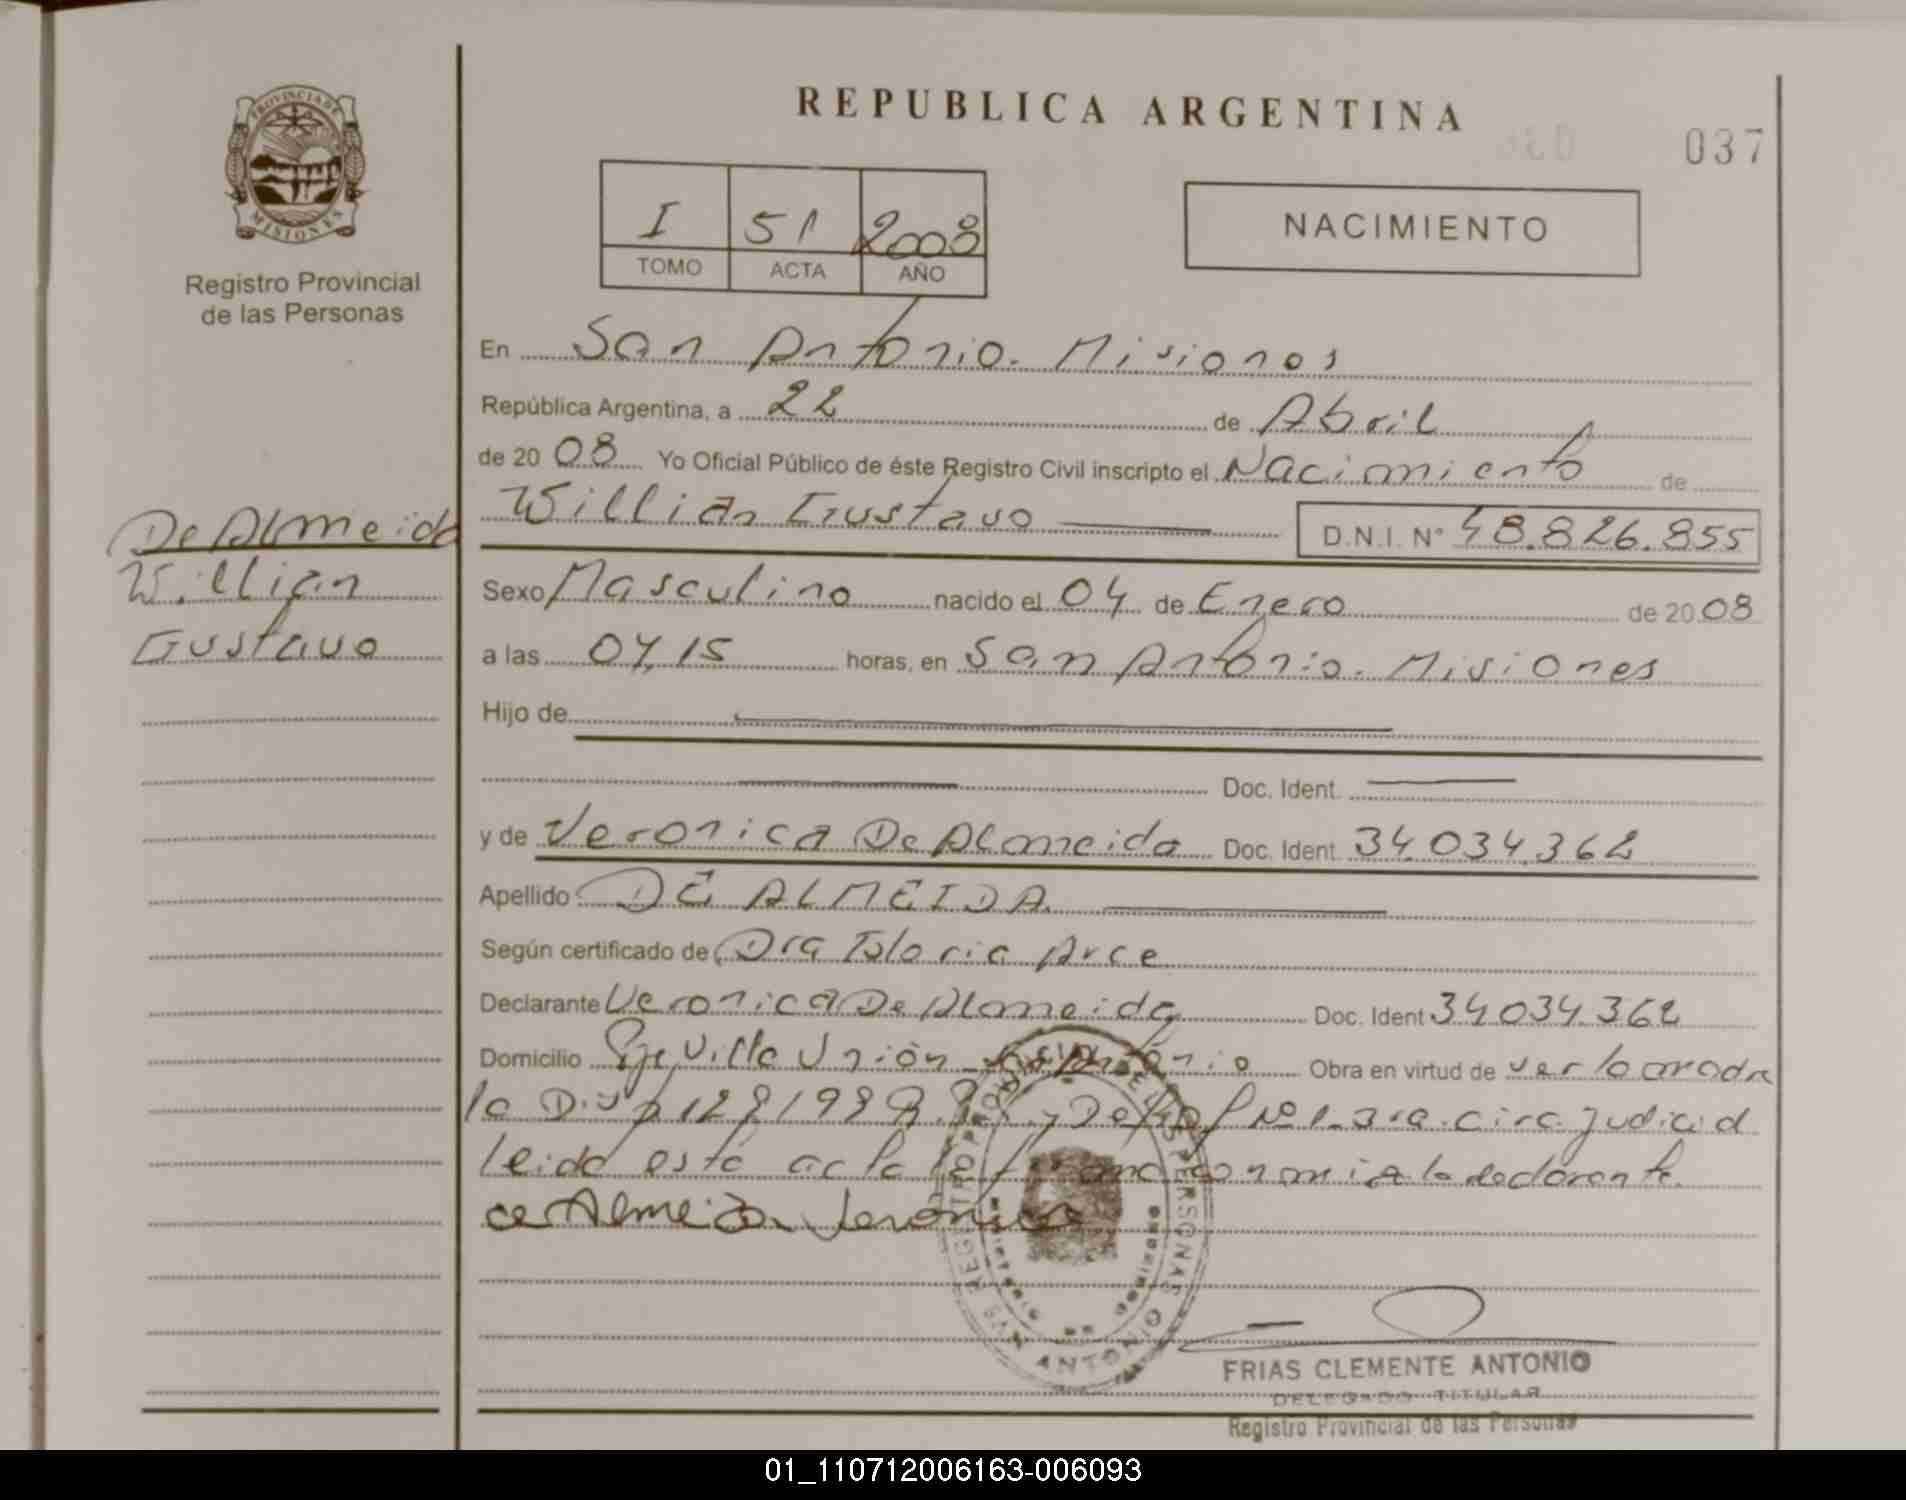 PROVINCIA DE
MISIONES
Registro Provincial
de las Personas
De Almeida
Willian
Gustavo
REPUBLICA ARGENTINA
037
I 51 2008
TOMO ACTA AÑO
NACIMIENTO
En San Antonio. Misiones
República Argentina, a 22 de Abril
de 20 08 Yo Oficial Público de éste Registro Civil inscripto el Nacimiento de
Willian Gustavo D.N.I. N° 48.826.855
Sexo Masculino nacido el 04 de Enero de 20 08
a las 04,15 horas, en San Antonio. Misiones
Hijo de
Doc. Ident.
y de Veronica De Almeida Doc. Ident. 34.034.362
Apellido DE ALMEIDA
Según certificado de Dra Arce
Declarante Veronica De Almeida Doc. Ident 34.034.362
Domicilio Pje Villa Unión San Antonio Obra en virtud de ver la madre
la 3ra. circ. judicial
leida esta acta la firma conmigo la declarante.
de Almeida Veronica
REGISTRO PROVINCIAL DE LAS PERSONAS
SAN ANTONIO
MISIONES
FRIAS CLEMENTE ANTONIO
DELEGADO TITULAR
Registro Provincial de las Personas
01_110712006163-006093